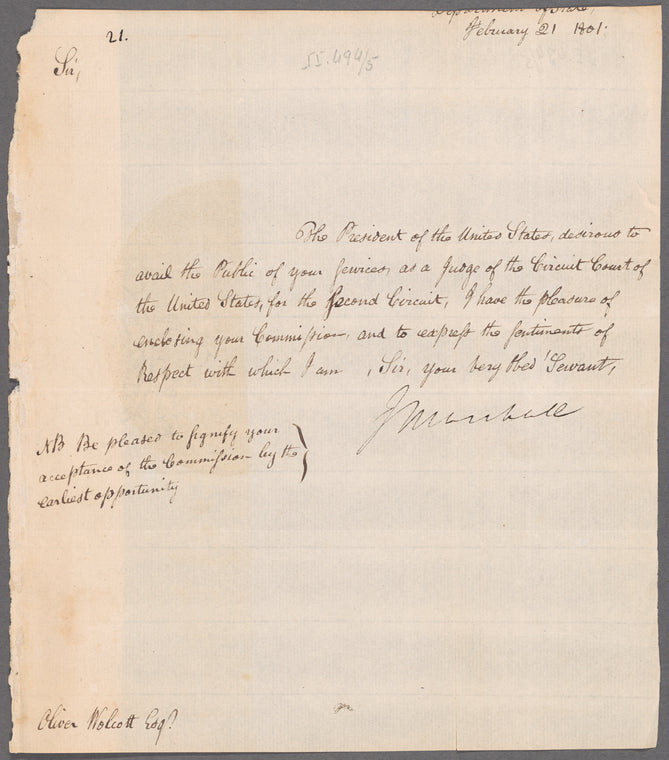 Department of State,
February 21 1801.
21.
II.494/5
Sir,
The President of the United States, desirous to
avail the Public of your Services, as a Judge of the Circuit Court of
the United States, for the Second Circuit, I have the pleasure of
enclosing your Commission, and to express the sentiments of
Respect with which I am , Sir, your very Obed Servant,
J Marshall
NB Be pleased to signify your
acceptance of the Commission by the
earliest opportunity
Oliver Wolcott Esqr.